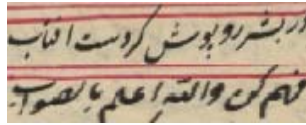 در بشر روپوش کردست افتاب
فهم کن والله اعلم بالصواب